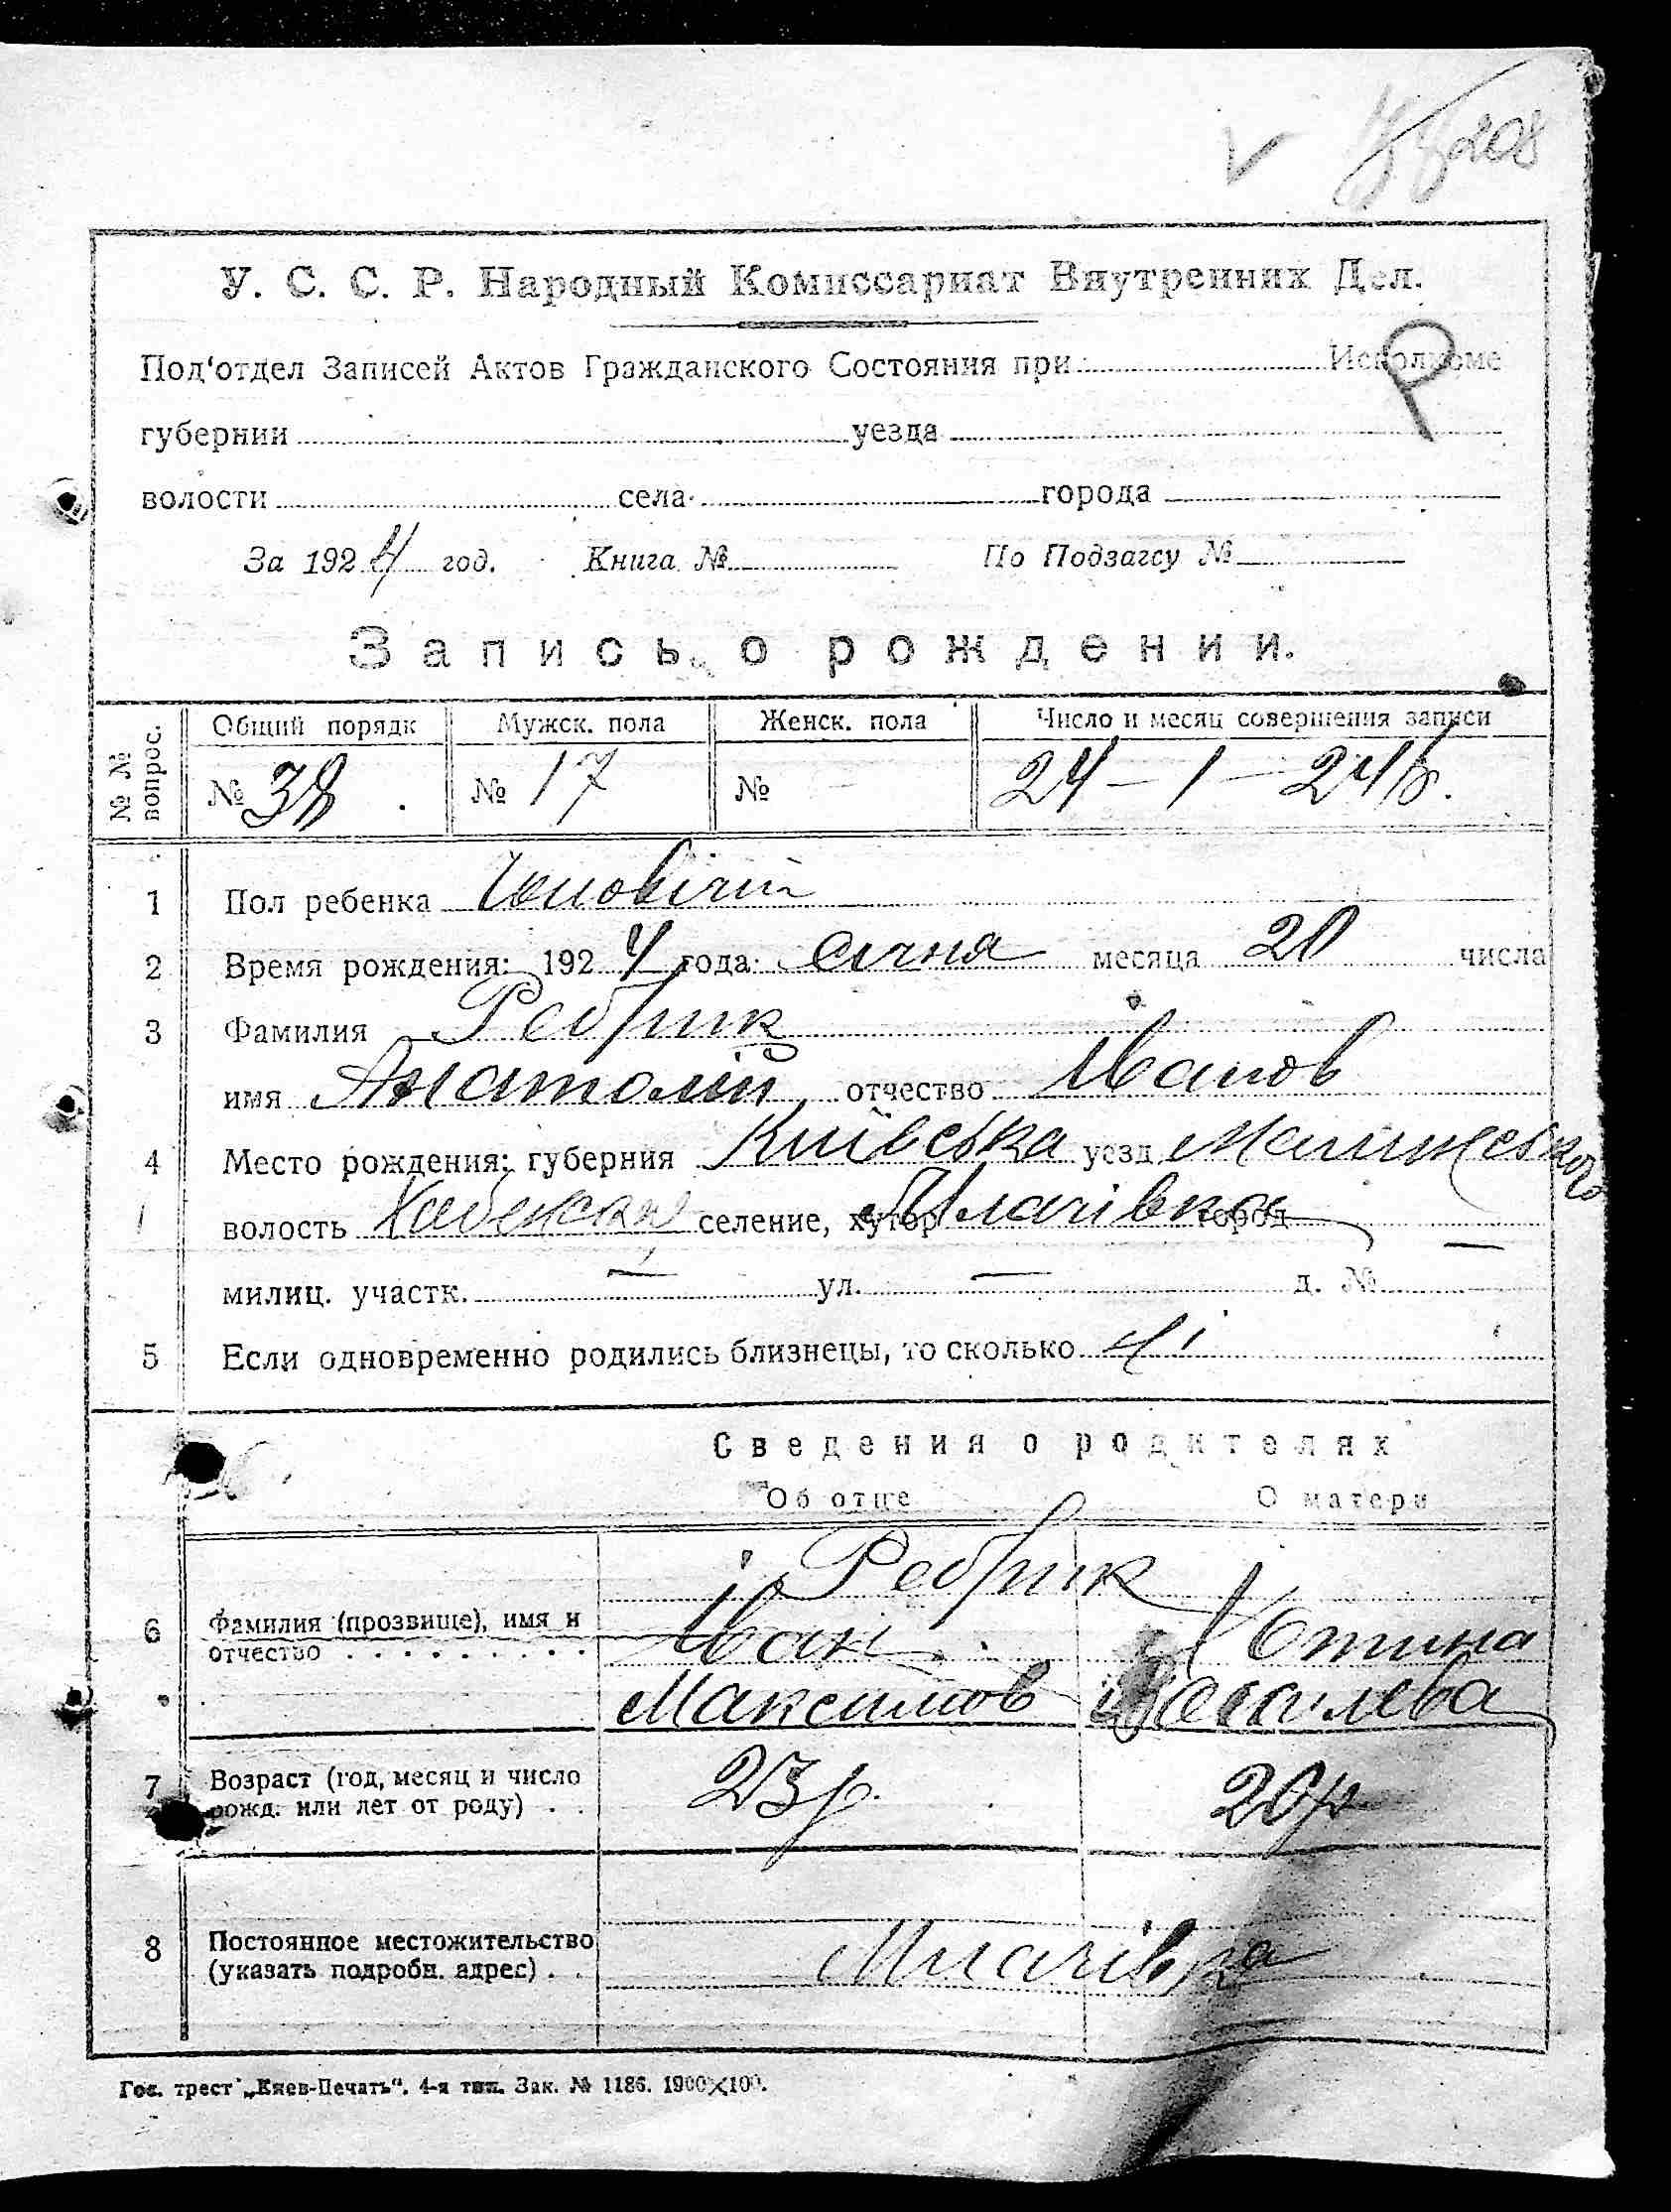 208
У. С. С. Р. Народный Комиссариат Внутренних Дел.
Р
Под‘отдел Записей Актов Гражданского Состояния при Исполкоме
губернии уезда
волости села города
За 1924 год. Книга № По Подзагсу №
Запись о рождении.
№ № вопрос. Общий порядк Мужск. пола Женск. пола Число и месяц совершения записи
№ 38 № 17 № 24 – 1 – 24 р.
1 Пол ребенка Чоловічий
2 Время рождения: 1924 года січня месяца 20 числа
3 Фамилия Ребрик
имя Анатолій отчество Іванов
4 Место рождения: губерния Київська уезд
волость селение, хутор город —
милиц. участк. — ул. — д. №
5 Если одновременно родились близнецы, то сколько
Сведения о родителях
Об отце О матери
Ребрик
6 Фамилия (прозвище), имя и Іван Хотина
отчество . . . . . . . . .
Максимов Василева
7 Возраст (год, месяц и число 23 р. 20 р
рожд. или лет от роду) . .
8 Постоянное местожительство
(указать подробн. адрес) . . Мначівка
Гос. трест „Киев-Печать“. 4-я тип. Зак. № 1186. 1900×100.